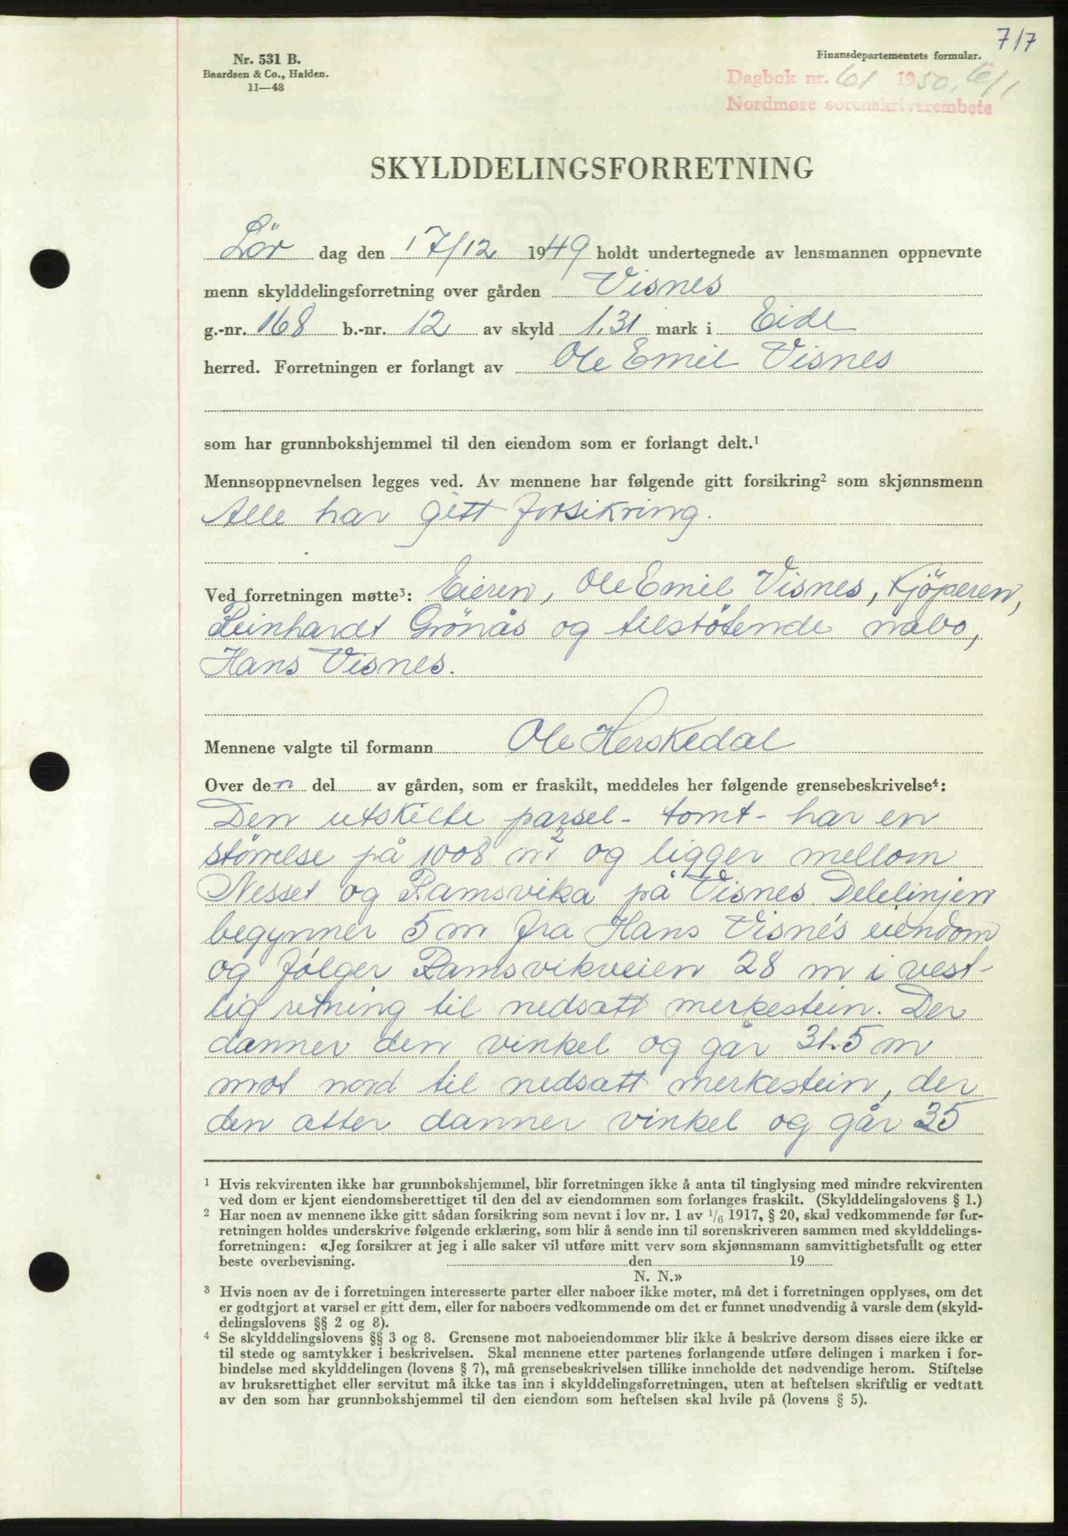 717
Nr. 531 B.
Baardsen & Co., Halden.
11—48
Finansdepartementets formular.
Dagbok nr. 61 1950, 6/1
Nordmøre sorenskriverembete
SKYLDDELINGSFORRETNING
Lör dag den 17/12 1949 holdt undertegnede av lensmannen oppnevnte
menn skylddelingsforretning over gården Visnes
g.-nr. 168 b.-nr. 12 av skyld 1.31 mark i Eide
herred. Forretningen er forlangt av Ole Emil Visnes
som har grunnbokshjemmel til den eiendom som er forlangt delt.¹
Mennsoppnevnelsen legges ved. Av mennene har følgende gitt forsikring² som skjønnsmenn
Alle har gitt forsikring.
Ved forretningen møtte³: Eieren, Ole Emil Visnes, Kjöperen,
Reinhardt Grönås og tilstötende nabo,
Hans Visnes.
Mennene valgte til formann Ole Herskedal
Over den del av gården, som er fraskilt, meddeles her følgende grensebeskrivelse⁴:
Den utskilte parsel - tomt - har en
störrelse på 1008 m² og ligger mellom
Nesset og Ramsvika på Visnes. Delelinjen
begynner 5 m fra Hans Visnes eiendom
og fölger Ramsvikveien 28 m i vest-
lig retning til nedsatt merkestein. Der
danner den vinkel og går 31.5 m
mot nord til nedsatt merkestein, der
den atter danner vinkel og går 35
¹ Hvis rekvirenten ikke har grunnbokshjemmel, blir forretningen ikke å anta til tinglysing med mindre rekvirenten
ved dom er kjent eiendomsberettiget til den del av eiendommen som forlanges fraskilt. (Skylddelingslovens § 1.)
² Har noen av mennene ikke gitt sådan forsikring som nevnt i lov nr. 1 av ¹/₆ 1917, § 20, skal vedkommende før for-
retningen holdes underskrive følgende erklæring, som blir å sende inn til sorenskriveren sammen med skylddelings-
forretningen: «Jeg forsikrer at jeg i alle saker vil utføre mitt verv som skjønnsmann samvittighetsfullt og etter
beste overbevisning. den 19
N. N.»
³ Hvis noen av de i forretningen interesserte parter eller naboer ikke møter, må det i forretningen opplyses, om det
er godtgjort at varsel er gitt dem, eller for naboers vedkommende om det er funnet unødvendig å varsle dem (skyld-
delingslovens §§ 2 og 8).
⁴ Se skylddelingslovens §§ 3 og 8. Grensene mot naboeiendommer blir ikke å beskrive dersom disses eiere ikke er
til stede og samtykker i beskrivelsen. Skal mennene etter partenes forlangende utføre delingen i marken i for-
bindelse med skylddelingen (lovens § 7), må grensebeskrivelsen tillike inneholde det nødvendige herom. Stiftelse
av bruksrettighet eller servitut må ikke tas inn i skylddelingsforretningen, uten at heftelsen skriftlig er vedtatt
av den som har grunnbokshjemmel til den eiendom som heftelsen skal hvile på (lovens § 5).